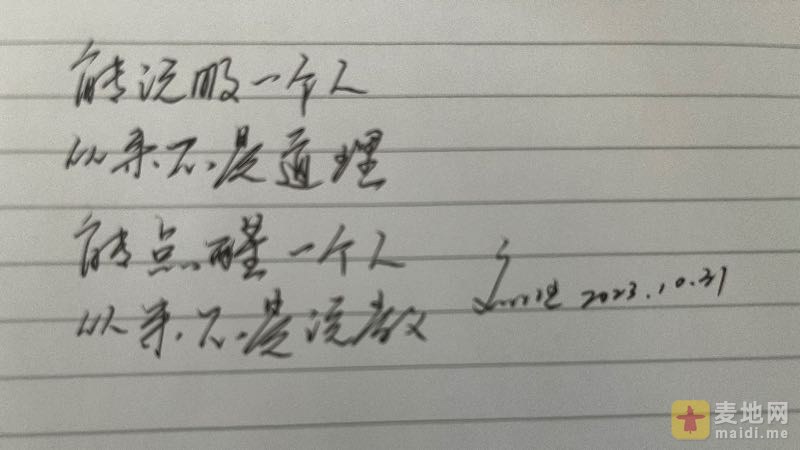 能说服一个人
从来不是道理
能点醒一个人
从来不是说教
2023.10.31
麦地网
maidi.me